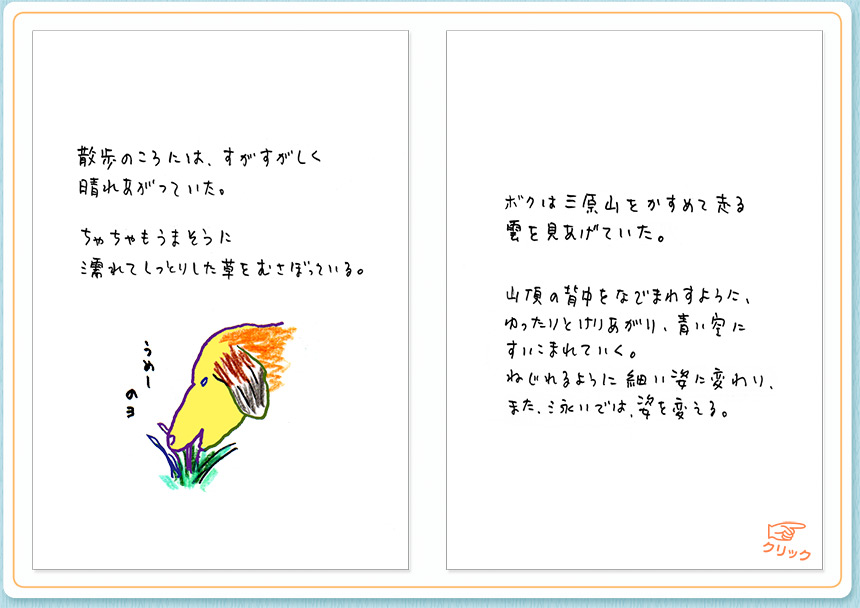 散歩のころには、すがすがしく
晴れあがっていた。
ちゃちゃもうまそうに
濡れてしっとりした草をむさぼっている。
うめー
のヨ
ボクは三原山をかすめて走る
雲を見あげていた。
山頂の背中をなでまわすように、
ゆったりとけりあがり、青い空に
すいこまれていく。
ねじれるように細い姿に変わり、
また、泳いでは、姿を変える。
クリック